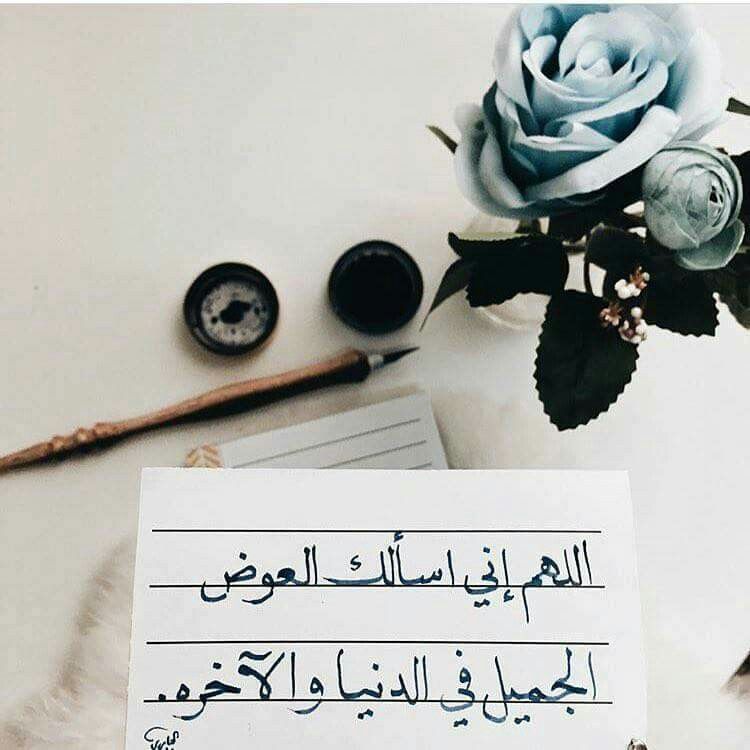 اللهم إني اسألك العوض
الجميل في الدنيا والآخره.